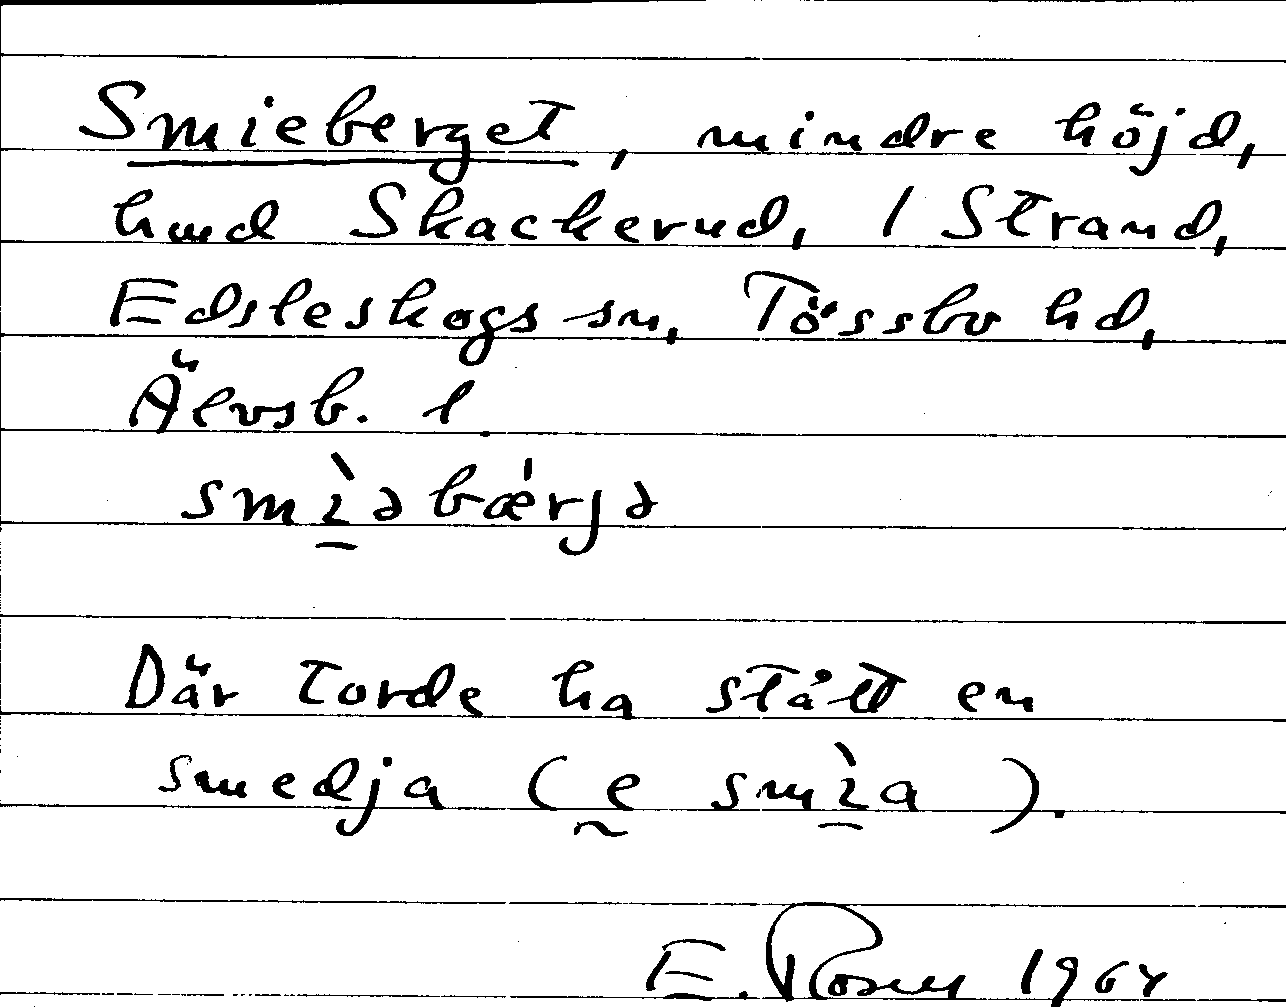 Smieberget, mindre höjd,
hmd Skackerud, 1 Strand,
Edsleskogs sn, Tössbo hd,
Älvsb. l.
smì̱əbǽrjə
Där torde ha stått en
smedja (ḛ smì̱a).
E. Rosell 1964